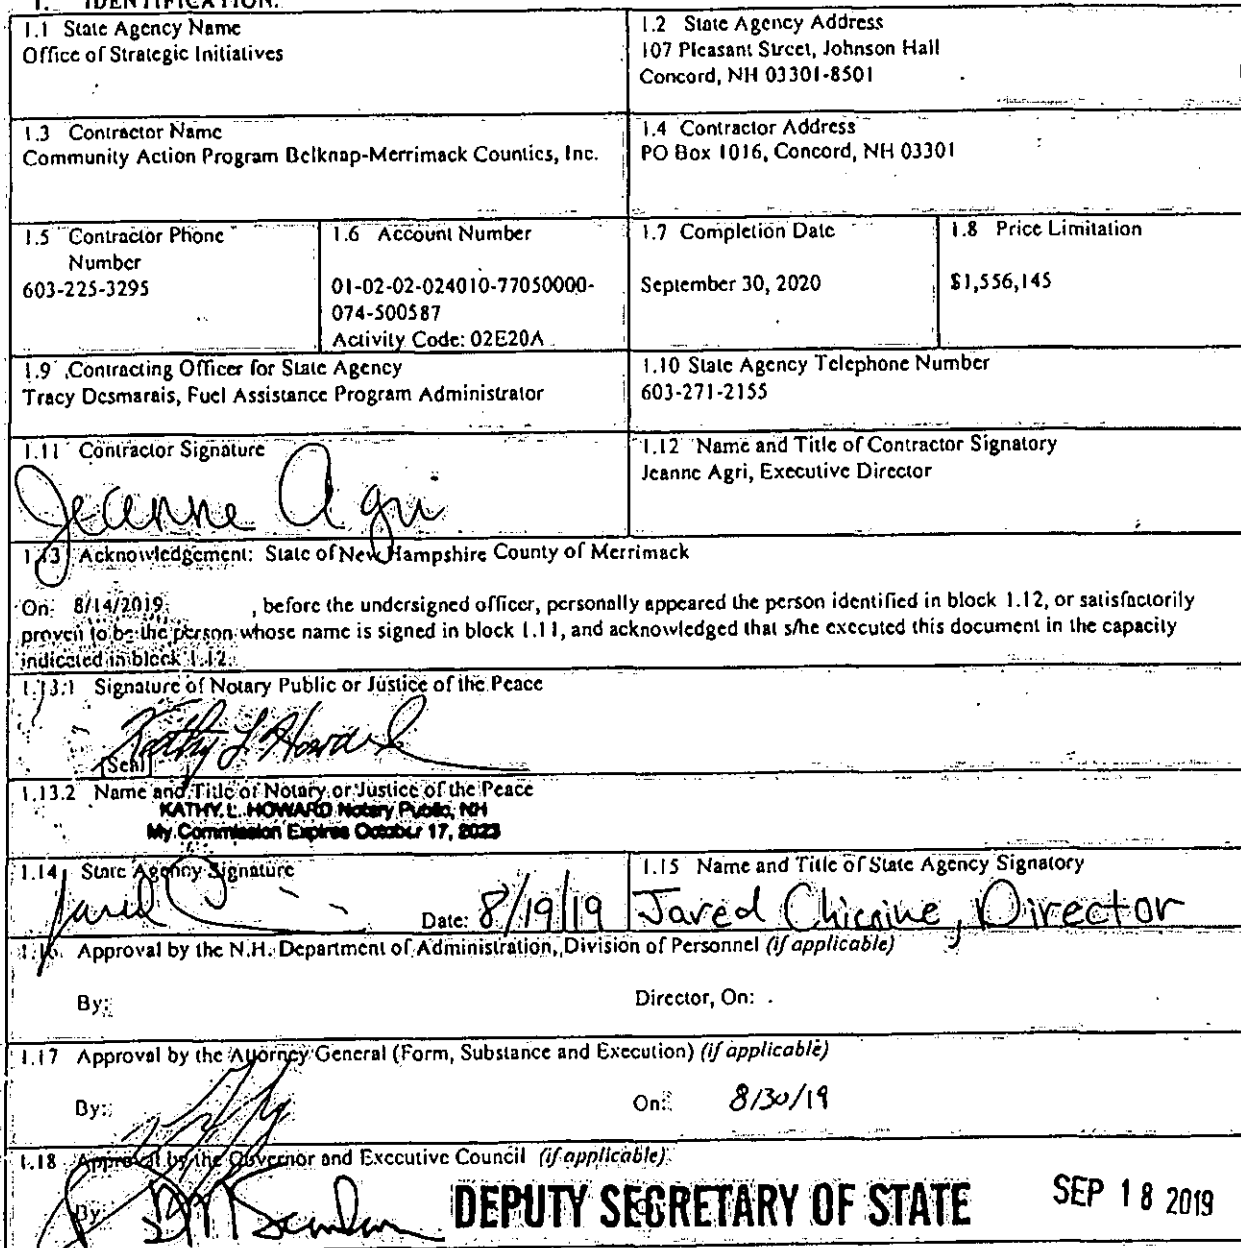 1. IDENTIFICATION.
1.1 State Agency Name
Office of Strategic Initiatives
1.2 State Agency Address
107 Pleasant Street, Johnson Hall
Concord, NH 03301-8501
1.3 Contractor Name
Community Action Program Belknap-Merrimack Counties, Inc.
1.4 Contractor Address
PO Box 1016, Concord, NH 03301
1.5 Contractor Phone
Number
603-225-3295
1.6 Account Number
01-02-02-024010-77050000-
074-500587
Activity Code: 02E20A
1.7 Completion Date
September 30, 2020
1.8 Price Limitation
$1,556,145
1.9 Contracting Officer for State Agency
Tracy Desmarais, Fuel Assistance Program Administrator
1.10 State Agency Telephone Number
603-271-2155
1.11 Contractor Signature
Jeanne Agri
1.12 Name and Title of Contractor Signatory
Jeanne Agri, Executive Director
1.13 Acknowledgement: State of New Hampshire County of Merrimack
On: 8/14/2019 , before the undersigned officer, personally appeared the person identified in block 1.12, or satisfactorily
proven to be the person whose name is signed in block 1.11, and acknowledged that s/he executed this document in the capacity
indicated in block 1.12.
1.13.1 Signature of Notary Public or Justice of the Peace
Kathy L Howard
[Seal]
1.13.2 Name and Title of Notary or Justice of the Peace
KATHY L. HOWARD Notary Public, NH
My Commission Expires October 17, 2023
1.14 State Agency Signature
Jared
Date: 8/19/19
1.15 Name and Title of State Agency Signatory
Jared Chicoine, Director
1.16. Approval by the N.H. Department of Administration, Division of Personnel (if applicable)
By:
Director, On:
1.17 Approval by the Attorney General (Form, Substance and Execution) (if applicable)
By:
On: 8/30/19
1.18 Approval by the Governor and Executive Council (if applicable)
By:
DEPUTY SECRETARY OF STATE
SEP 18 2019